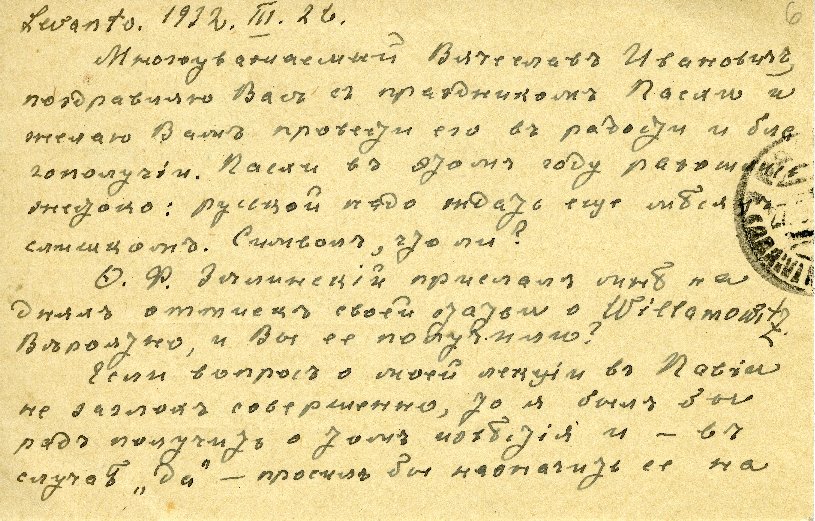 Levanto. 1932. III. 26.
6
Многоуважаемый Вячеславъ Ивановичъ,
поздравляю Васъ съ праздникомъ Пасхи и
желаю Вамъ провести его въ радости и бла
гополучіи. Пасхи въ этомъ году
жестоко: русской надо ждать еще мѣсяцъ
слишкомъ. Символъ, что ли?
Ѳ. Ф. Зѣлинскій прислалъ мнѣ на
дняхъ оттискъ своей статьи о Willamowitz.
Вѣроятно, и Вы ее получили?
Если вопросъ о моей лекціи въ Павіи
не заглохъ совершенно, то я былъ бы
радъ получить о томъ извѣстія и – въ
случаѣ „да“ – просилъ бы назначить ее на